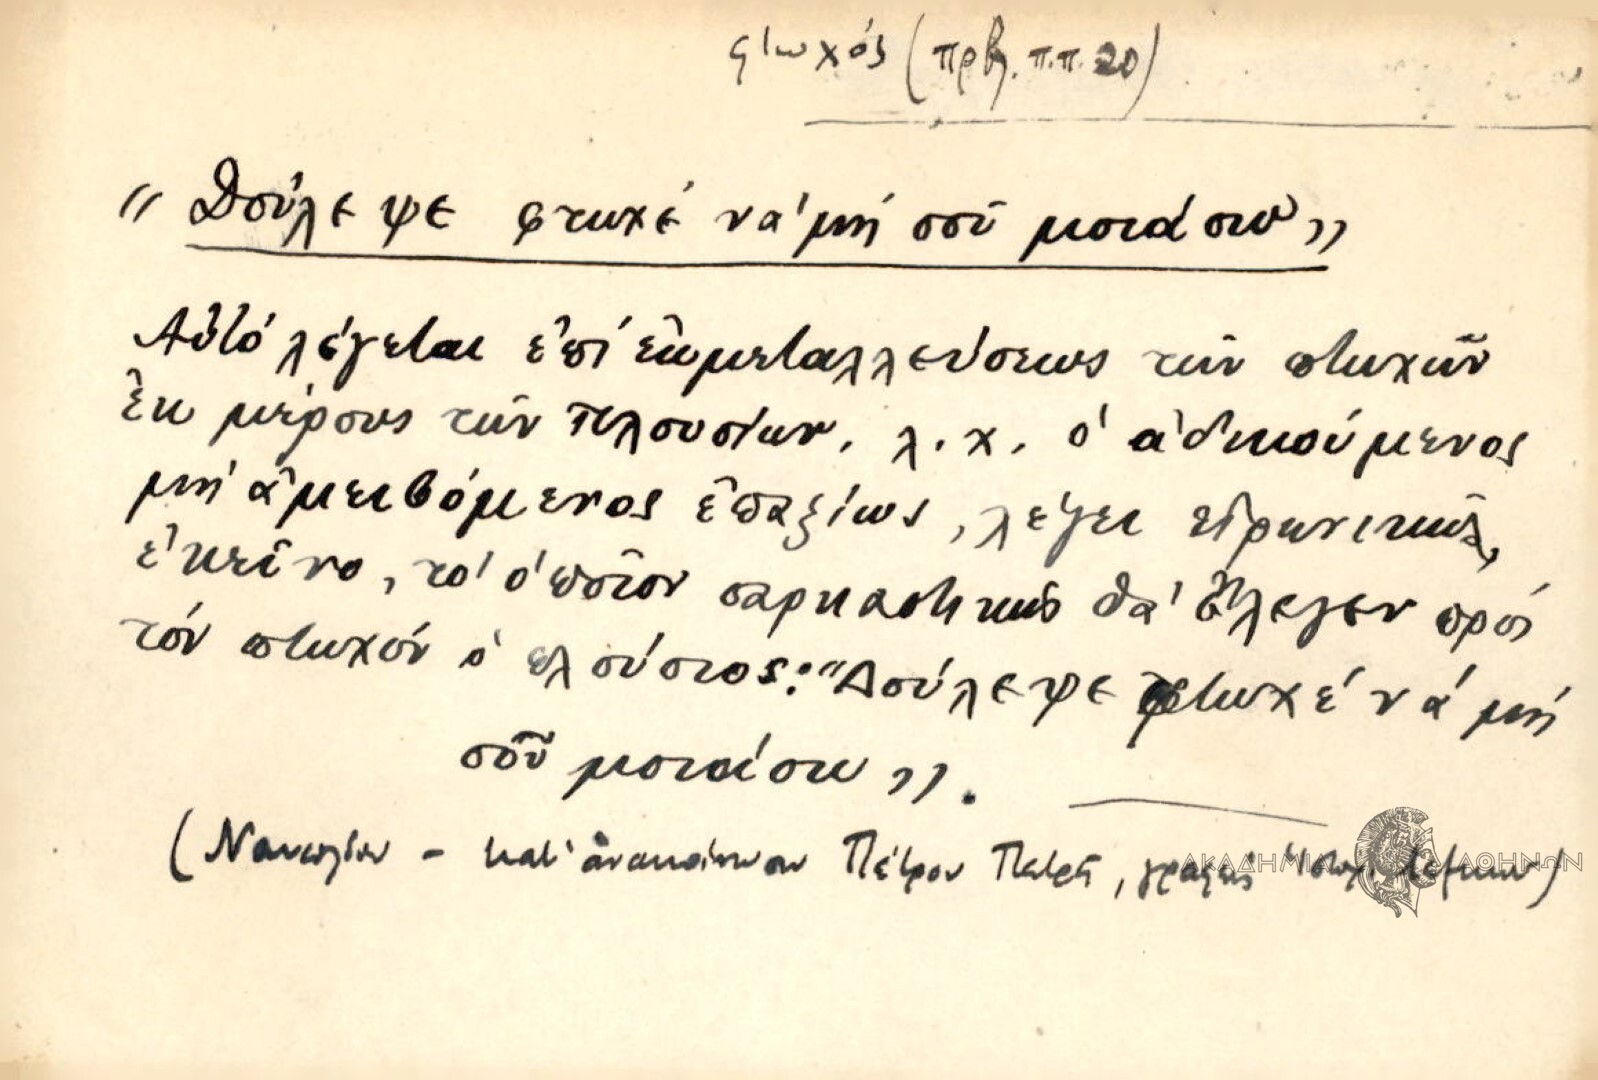 φτωχός (πρβ. π.π. 20)
«Δούλεψε φτωχέ νὰ μή σοῦ μοιάσω»
Αὐτό λέγεται ἐπί ἐκμεταλλεύσεως τῶν πτωχῶν
ἐκ μέρους τῶν πλουσίων. λ.χ. ὁ ἀδικούμενος
μή ἀμειβόμενος ἐπαξίως, λέγει εἰρωνικῶς,
ἐκεῖνο, τό ὁποῖον σαρκαστικῶς θά ἔλεγεν πρός
τόν πτωχόν ὁ πλούσιος: "Δούλεψε φτωχέ νά μή
σοῦ μοιάσω».
(Ναυπλίου - κατ' ἀνακοίνωσιν Πέτρου Πετρῆ, γραφεύς
ΑΚΑΔΗΜΙΑ ΑΘΗΝΩΝ